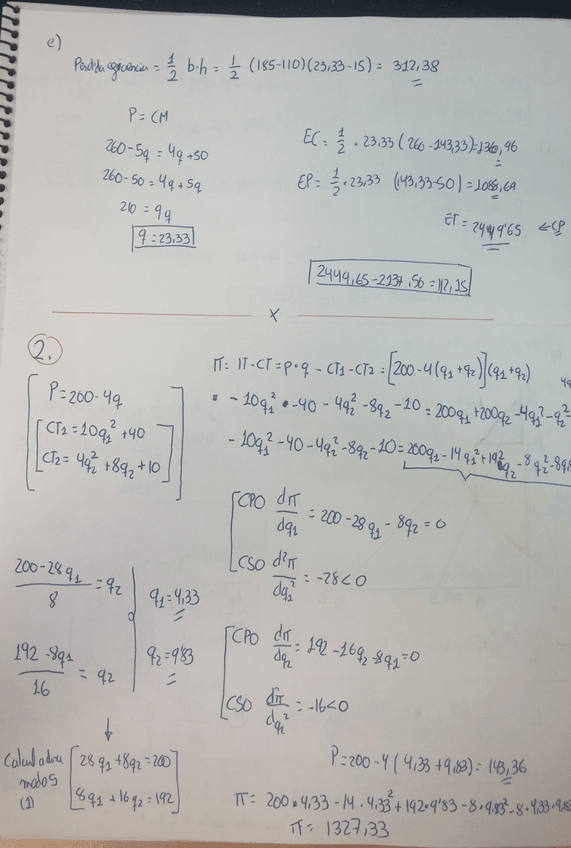 e)
Perdida eficiencia = 1/2 b·h = 1/2 (185-110)(23,33-15) = 312,38
P = CM
260-5q = 4q+50
260-50 = 4q+5q
210 = 9q
q = 23,33
EC = 1/2 · 23,33 (260-143,33) = 1360,96
EP = 1/2 · 23,33 (143,33-50) = 1088,69
ET = 2449'65 ← CP
2449,65-2137,50 = 112,15
X
2.
P = 200-4q
CT1 = 10q1² + 40
CT2 = 4q2² + 8q2 + 10
π = IT-CT = P·q - CT1 - CT2 = [200-4(q1+q2)](q1+q2)
- 10q1² - 40 - 4q2² - 8q2 - 10 = 200q1 + 200q2 - 4q1² - q2² -
- 10q1² - 40 - 4q2² - 8q2 - 10 = 200q1 - 14q1² + 192q2 - 8q2² - 8q
CPO dπ/dq1 = 200 - 28q1 - 8q2 = 0
CSO d²π/dq1² = -28 < 0
(200-28q1)/8 = q2
(192-8q1)/16 = q2
q1 = 4,33
q2 = 9'83
CPO dπ/dq2 = 192 - 16q2 - 8q1 = 0
CSO dπ/dq2² = -16 < 0
Calculadora
modo 5
(1)
28q1 + 8q2 = 200
8q1 + 16q2 = 192
P = 200 - 4(4,33 + 9,83) = 143,36
π = 200·4,33 - 14·4,33² + 192·9'83 - 8·9,83² - 8·4,33·9,83
π = 1327,33